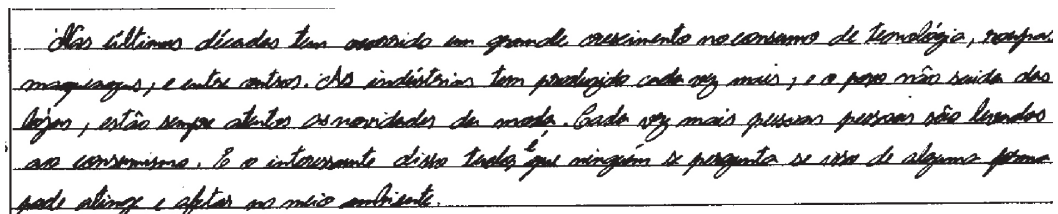 Nas últimas décadas tem ocorrido um grande crescimento no consumo de tecnológia, roupas
maqueagens, e entre outros. As indústrias tem produzido cada vez mais, e o povo não saida das
lojas, estão sempre atentos as novidades da moda. Cada vez mais pessoas pessoas são levados
ao consumismo. E o interessante disso tudo é que ninguém se pergunta se isso de alguma forma
pode atinge e afetar no meio ambiente.